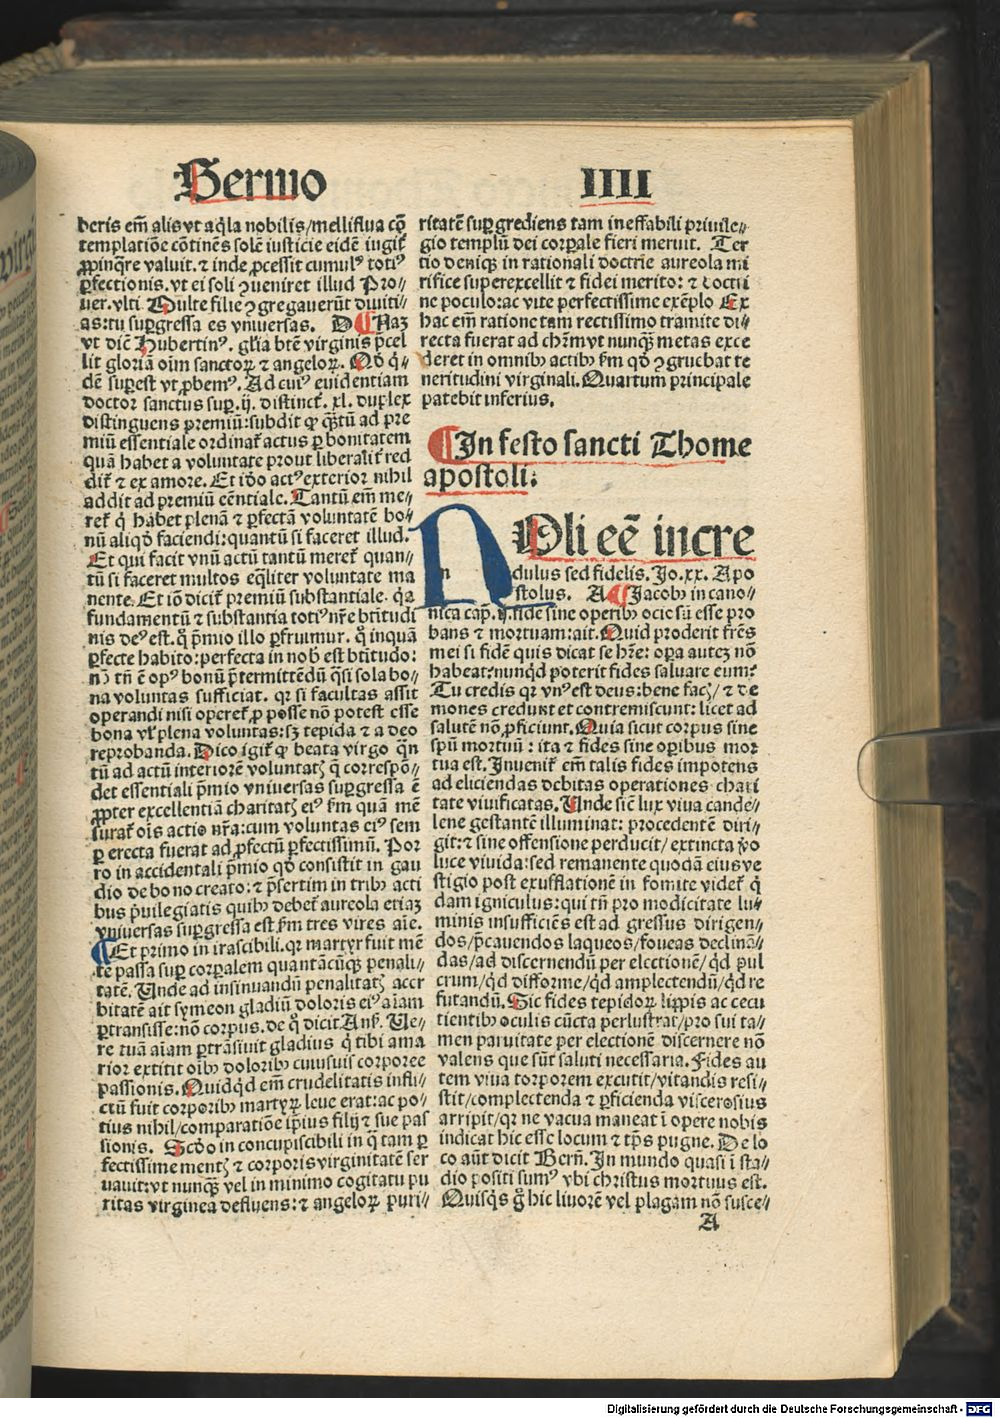 Sermo IIII
beris em̄ alis vt aq̇la nobilis/melliflua cō
templatiōe cōtinēs solē iusticie eidē iugit᷑
ꝓpinq̄re valuit. ⁊ inde ꝓcessit cumulꝰ totiꝰ
ꝑfectionis. vt ei soli ꝯueniret illud Pro-
uer. vlti. Multe filie ꝯgregauerūt diuiti//
as: tu suꝑgressa es vniuersas. D Naꝫ
vt dic̄ Hubertinꝰ. gl̄ia btē virginis p̄cel
lit gloriā oīm sanctoꝝ ⁊ angeloꝝ. Qd̄ q̇-
dē suꝑest vt ꝓbemꝰ. Ad cuiꝰ euidentiam
doctor sanctus suꝑ. ij. distinct᷑. xl. duplex
distinguens premiū: subdit ꝙ q̄ꝫtū ad pre
miū essentiale ordinat᷑ actus ꝑ bonitatem
quā habet a voluntate prout liberalit᷑ red
dit᷑ ⁊ ex amore. Et iō actꝰ exterior nihil
addit ad premiū eēntiale. Tantū em̄ me-
ret᷑ q̇ habet plenā ⁊ ꝑfectā voluntatē bo/
nū aliqd̄ faciendi: quantū si faceret illud.
Et qui facit vnū actū tantū meret᷑ quan-
tū si faceret multos eq̄liter voluntate ma
nente. Et iō dicit᷑ premiū substantiale. q̇a
fundamentū ⁊ substantia totiꝰ nr̄e bt̄itudi
nis deꝰ est. q̊ p̄mio illo ꝑfruimur. q̊ inquā
ꝑfecte habito: perfecta in nob̄ est bt̄itudo:
nō tn̄ ē opꝰ bonū p̄termittēdū q̄si sola bo//
na voluntas sufficiat. qꝛ si facultas assit
operandi nisi operet᷑ ꝓ posse nō potest esse
bona vl̓ plena voluntas: sꝫ tepida ⁊ a deo
reprobanda. Dico igit᷑ ꝙ beata virgo q̄n
tū ad actū interiorē voluntatꝭ q̄ correspō//
det essentiali p̄mio vniuersas suꝑgressa ē
ꝓpter excellentiā charitatꝭ eiꝰ ẜm quā mē
surat᷑ oīs actio nr̄a: cum voluntas eiꝰ sem
ꝑ erecta fuerat ad ꝓfectū ꝑfectissimū. Por
ro in accidentali p̄mio qd̄ consistit in gau
dio de bono creato: ⁊ p̄sertim in tribꝰ acti
bus p̄uilegiatis quibꝰ debet᷑ aureola etiaꝫ
vniuersas suꝑgressa est ẜm tres vires aīe.
Et primo in irascibili. qꝛ martyr fuit mē
te passa suꝑ corꝑalem quantācūqꝫ penali/
tatē. Unde ad insinuandū penalitatꝭ acer
bitatē ait symeon gladiū doloris eiꝰ aīam
ꝑtransisse: nō corpus. de q̊ dicit Ans̄. Ue//
re tuā aīam ꝑtrāsiuit gladius q̇ tibi ama
rior extitit oībꝰ doloribꝰ cuiusuis corporee
passionis. Quidqd̄ em̄ crudelitatis infli//
ctū fuit corporibꝰ martyꝝ leue erat: ac po/
tius nihil/comparatiōe ip̄ius filij ⁊ sue pas
sionis. Scd̄o in concupiscibili in q̄ tam ꝑ
fectissime mentꝭ ⁊ corporis virginitatē ser
uauit: vt nunq̄ꝫ vel in minimo cogitatu pu
ritas virginea defluens: ⁊ angeloꝝ puri//
ritatē suꝑgrediens tam ineffabili priuile//
gio templū dei corꝑale fieri meruit. Ter
tio deniqꝫ in rationali doctrie aureola mi
rifice superexcellit ⁊ fidei merito: ⁊ doctri
ne poculo: ac vite perfectissime exēplo Ex
hac em̄ ratione tam rectissimo tramite di/
recta fuerat ad chr̄m vt nunq̄ꝫ metas exce
deret in omnibꝰ actibꝰ ẜm qd̄ ꝯgruebat te
neritudini virginali. Quartum principale
patebit inferius.
In festo sancti Thome
apostoli:
Noli eē incre
dulus sed fidelis. Jo. xx. Apo
stolus. A Jacobꝰ in cano-
nica cap. ij. fidē sine operibꝰ ociosū esse pro
bans ⁊ mortuam: ait. Quid proderit fr̄es
mei si fidē quis dicat se hr̄e: oꝑa autē nō
habeat: nunqd̄ poterit fides saluare eum?
Tu credis qꝛ vnꝰ est deus: bene facꝭ/ ⁊ de
mones credunt et contremiscunt: licet ad
salutē nō ꝓficiunt. Quia sicut corpus sine
spū mortuū: ita ⁊ fides sine oꝑibus mor
tua est. Inuenit᷑ em̄ talis fides impotens
ad eliciendas debitas operationes chari
tate viuificatas. Unde sic̄ lux viua cande//
lene gestantē illuminat: procedentē diri//
git: ⁊ sine offensione perducit/ extincta v̊o
luce viuida: sed remanente quodā eius ve
stigio post exufflationē in fomite videt᷑ q̇
dam igniculus: qui tn̄ pro modicitate lu//
minis insufficiēs est ad gressus dirigen/
dos/p̄cauendos laqueos/foueas declinā//
das/ad discernendū per electionē/qd̄ pul
crum/qd̄ difforme/qd̄ amplectendū/qd̄ re
futandū. Sic fides tepidoꝝ lippis ac cecu
tientibꝰ oculis cūcta perlustrat/pro sui ta/
men paruitate per electionē discernere nō
valens que sūt saluti necessaria. Fides au
tem viua torporem excutit/vitandis resi//
stit/complectenda ⁊ ꝑficienda viscerosius
arripit/qꝛ ne vacua maneat ī opere nobis
indicat hic esse locum ⁊ tp̄s pugne. De lo
co aūt dicit Bern̄. In mundo quasi ī sta//
dio positi sumꝰ vbi christus mortuus est.
Quisq̇s g̊ hic liuorē vel plagam nō susce//
A
Digitalisierung gefördert durch die Deutsche Forschungsgemeinschaft - DFG